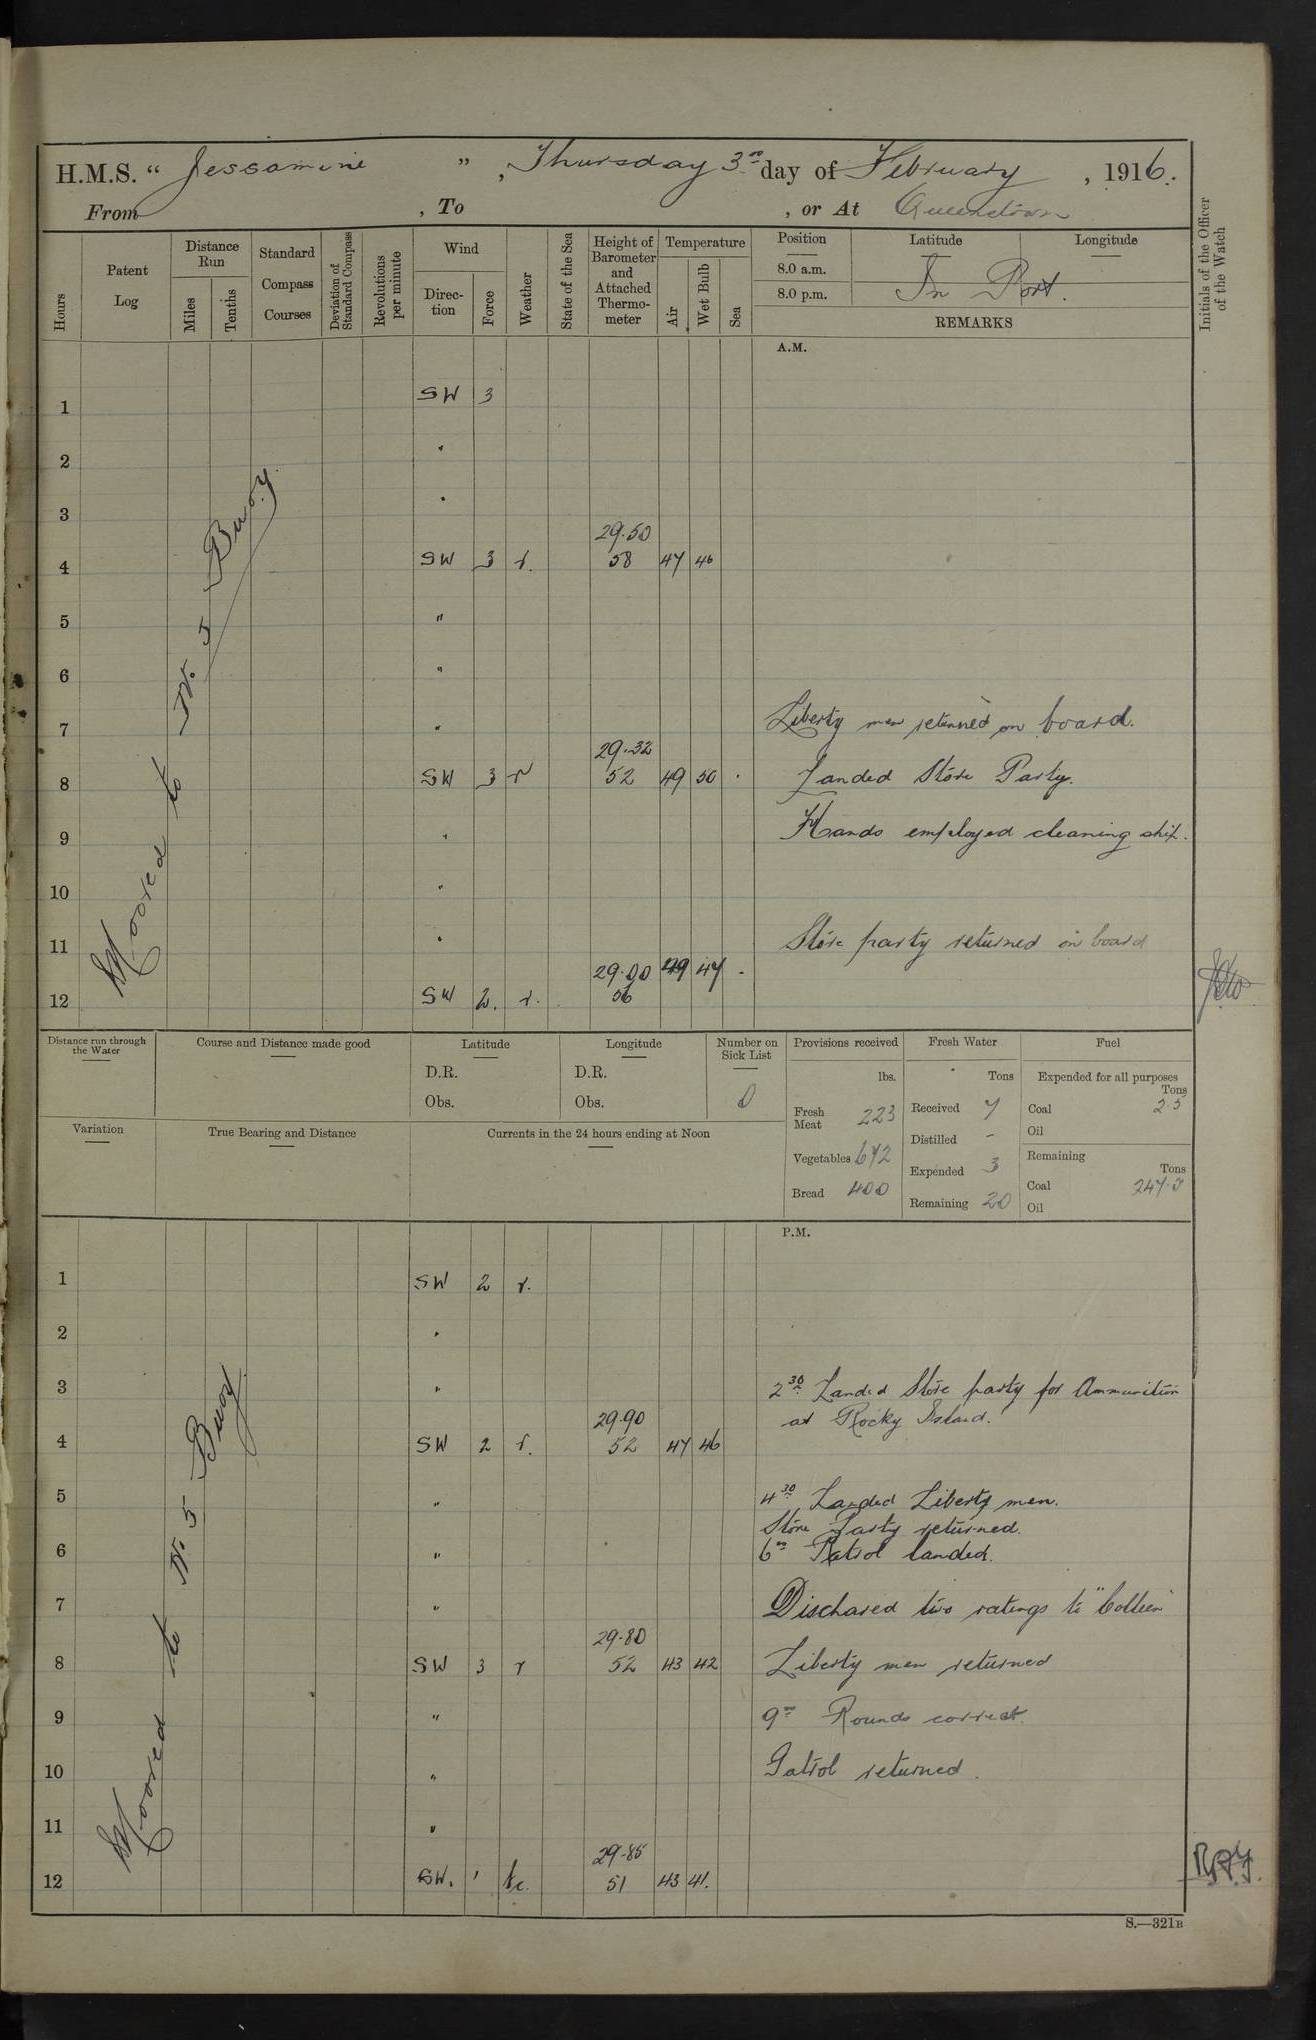 H.M.S. “ Jessamine ” , Thursday 3rd day of February , 1916.
From , To , or At Queenstown
Hours
Patent Log
Distance Run
Miles
Tenths
Standard Compass Courses
Deviation of Standard Compass
Revolutions per minute
Wind
Direction
Force
Weather
State of the Sea
Height of Barometer and Attached Thermometer
Temperature
Air
Wet Bulb
Sea
Position
8.0 a.m.
8.0 p.m.
Latitude
Longitude
In Port.
REMARKS
Initials of the Officer of the Watch
A.M.
Moored to No. 5 Buoy
1 SW 3
2 "
3 "
29.50
4 SW 3 r. 58 47 46
5 "
6 "
7 " Liberty men returned on board.
29.32
8 SW 3 r 52 49 50 Landed Store Party.
9 " Hands employed cleaning ship.
10 "
11 " Store party returned on board
29.90 49 47
12 SW 2. r. 56
Distance run through the Water
Course and Distance made good
Latitude
D.R.
Obs.
Longitude
D.R.
Obs.
Number on Sick List
0
Variation
True Bearing and Distance
Currents in the 24 hours ending at Noon
Provisions received
lbs.
Fresh Meat 223
Vegetables 672
Bread 400
Fresh Water
Tons
Received 7
Distilled -
Expended 3
Remaining 20
Fuel
Expended for all purposes
Tons
Coal 2.5
Oil
Remaining
Tons
Coal 247.
Oil
P.M.
Moored to No. 5 Buoy.
1 SW 2 r.
2 "
3 " 2 30 Landed Store party for Ammunition
at Rocky Island.
29.90
4 SW 2 r. 52 47 46
5 " 4 30 Landed Liberty men.
Store Party returned.
6 " 6 Patrol landed.
7 " Dischared two ratings to "Colleen"
29.80
8 SW 3 r 52 43 42 Liberty men returned
9 " 9 Rounds correct.
10 " Patrol returned.
11 "
29.85
12 SW. 1 bc. 51 43 41.
S.—321B